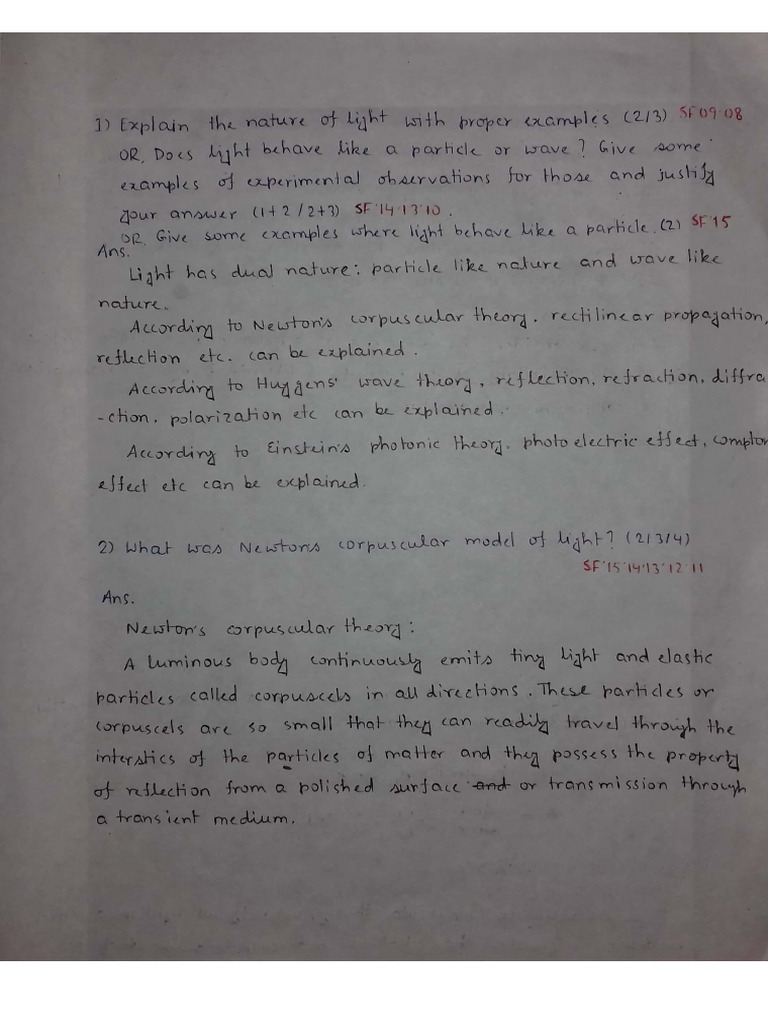 1) Explain the nature of light with proper examples (2/3) SF 09'08
OR, Does light behave like a particle or wave? Give some
examples of experimental observations for those and justify
your answer (1+2/2+3) SF'14'13'10.
OR. Give some examples where light behave like a particle. (2) SF'15
Ans.
Light has dual nature: particle like nature and wave like
nature.
According to Newton's corpuscular theory, rectilinear propagation,
reflection etc. can be explained.
According to Huygens' wave theory, reflection, refraction, diffra
-ction, polarization etc can be explained.
According to Einstein's photonic theory, photo electric effect, compton
effect etc can be explained.
2) What was Newton's corpuscular model of light? (2/3/4)
SF'15'14'13'12'11
Ans.
Newton's corpuscular theory:
A luminous body continuously emits tiny light and elastic
particles called corpuscels in all directions. These particles or
corpuscels are so small that they can readily travel through the
interstics of the particles of matter and they possess the property
of reflection from a polished surface and or transmission through
a transient medium.